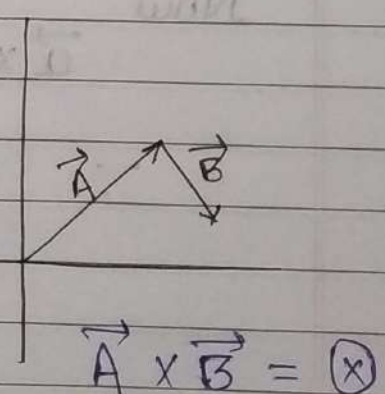 A⃗
B⃗
A⃗ × B⃗ = ⊗